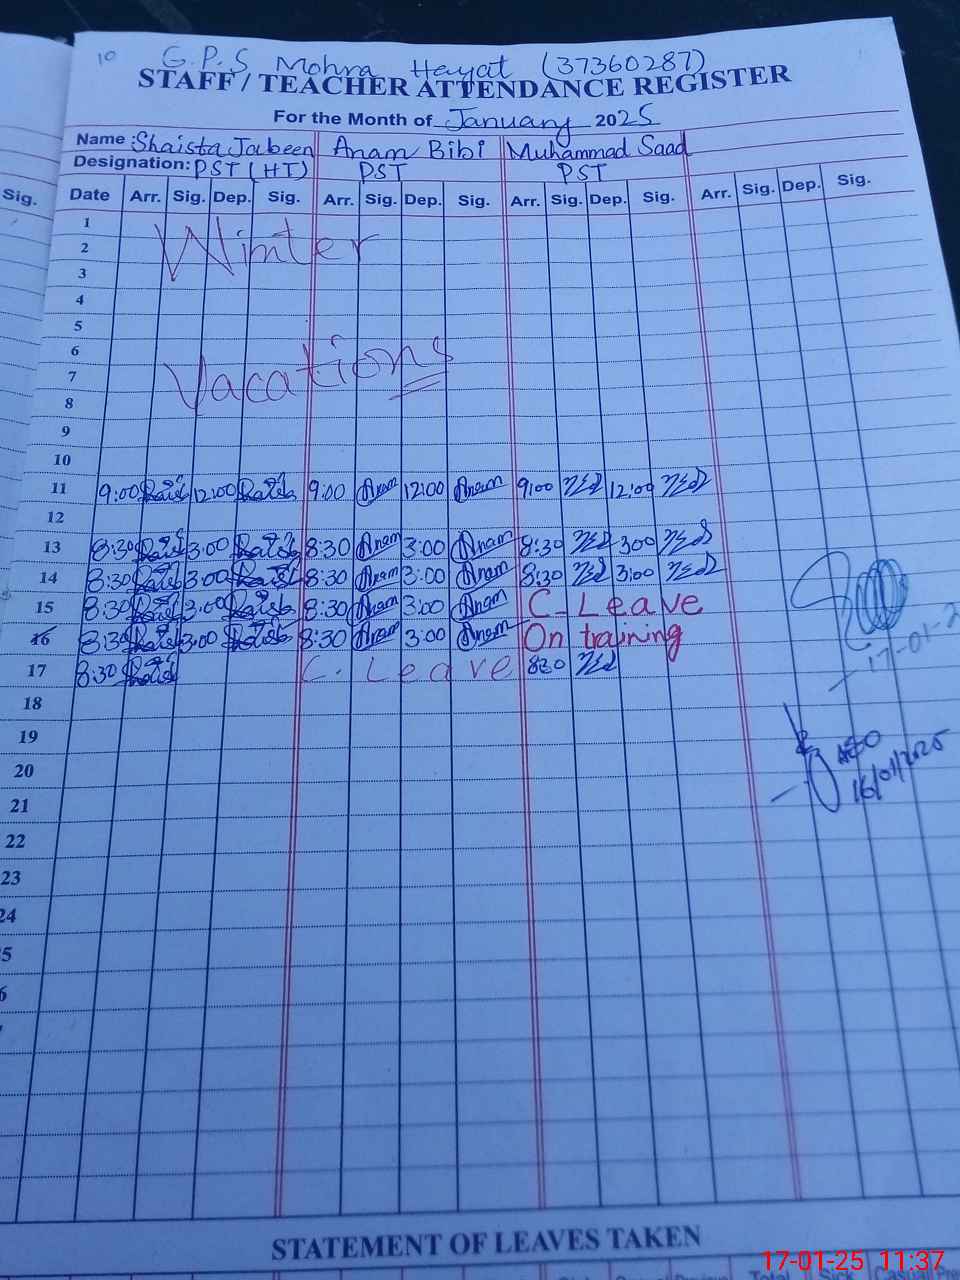 10
G.P.S Mohra Hayat (37360287)
STAFF / TEACHER ATTENDANCE REGISTER
For the Month of January 2025
Name : Shaista Jabeen Anam Bibi Muhammad Saad
Designation: PST (HT) PST PST
Sig. Date Arr. Sig. Dep. Sig. Arr. Sig. Dep. Sig. Arr. Sig. Dep. Sig. Arr. Sig. Dep. Sig.
1
2 Winter
3
4
5
6
7 Vacations
8
9
10
11 9:00 12:00 9:00 Anam 12:00 Anam 9:00 12:00
12
13 8:30 3:00 8:30 Anam 3:00 Anam 8:30 300
14 8:30 3:00 8:30 Anam 3:00 Anam 8:30 3:00
15 8:30 3:00 8:30 Anam 3:00 Anam C-Leave
16 8:30 3:00 8:30 Anam 3:00 Anam On training
17 8:30 C. Leave 830
17-01-2
18
19
AEO
16/01/2025
20
21
22
23
24
5
6
STATEMENT OF LEAVES TAKEN
17-01-25 11:37
Total Sick Casual